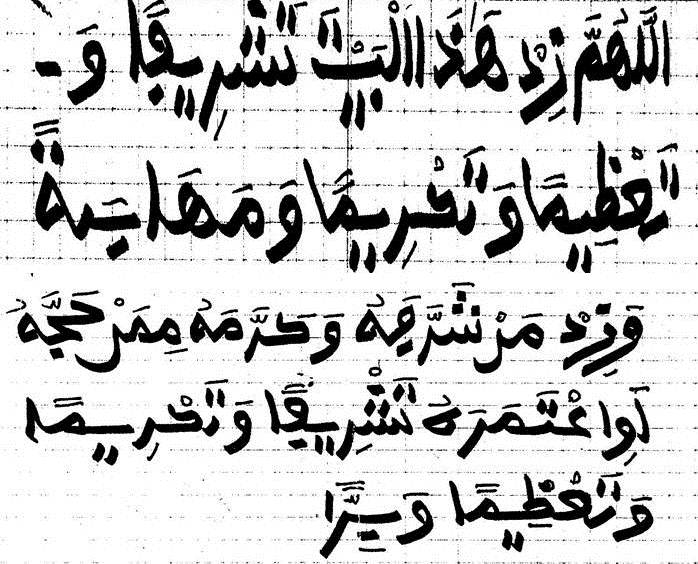 اللَّهُمَّ زِدْ هَذَا الْبَيْتَ تَشْرِيفًا وَ-
تَعْظِيمًا وَتَكْرِيمًا وَمَهَابَةً
وَزِدْ مَنْ شَرَّفَهُ وَكَرَّمَهُ مِمَنْ حَجَّهُ
أَوِ اعْتَمَرَهُ تَشْرِيفًا وَتَكْرِيمًا
وَتَعْظِيمًا وَبِرًّا